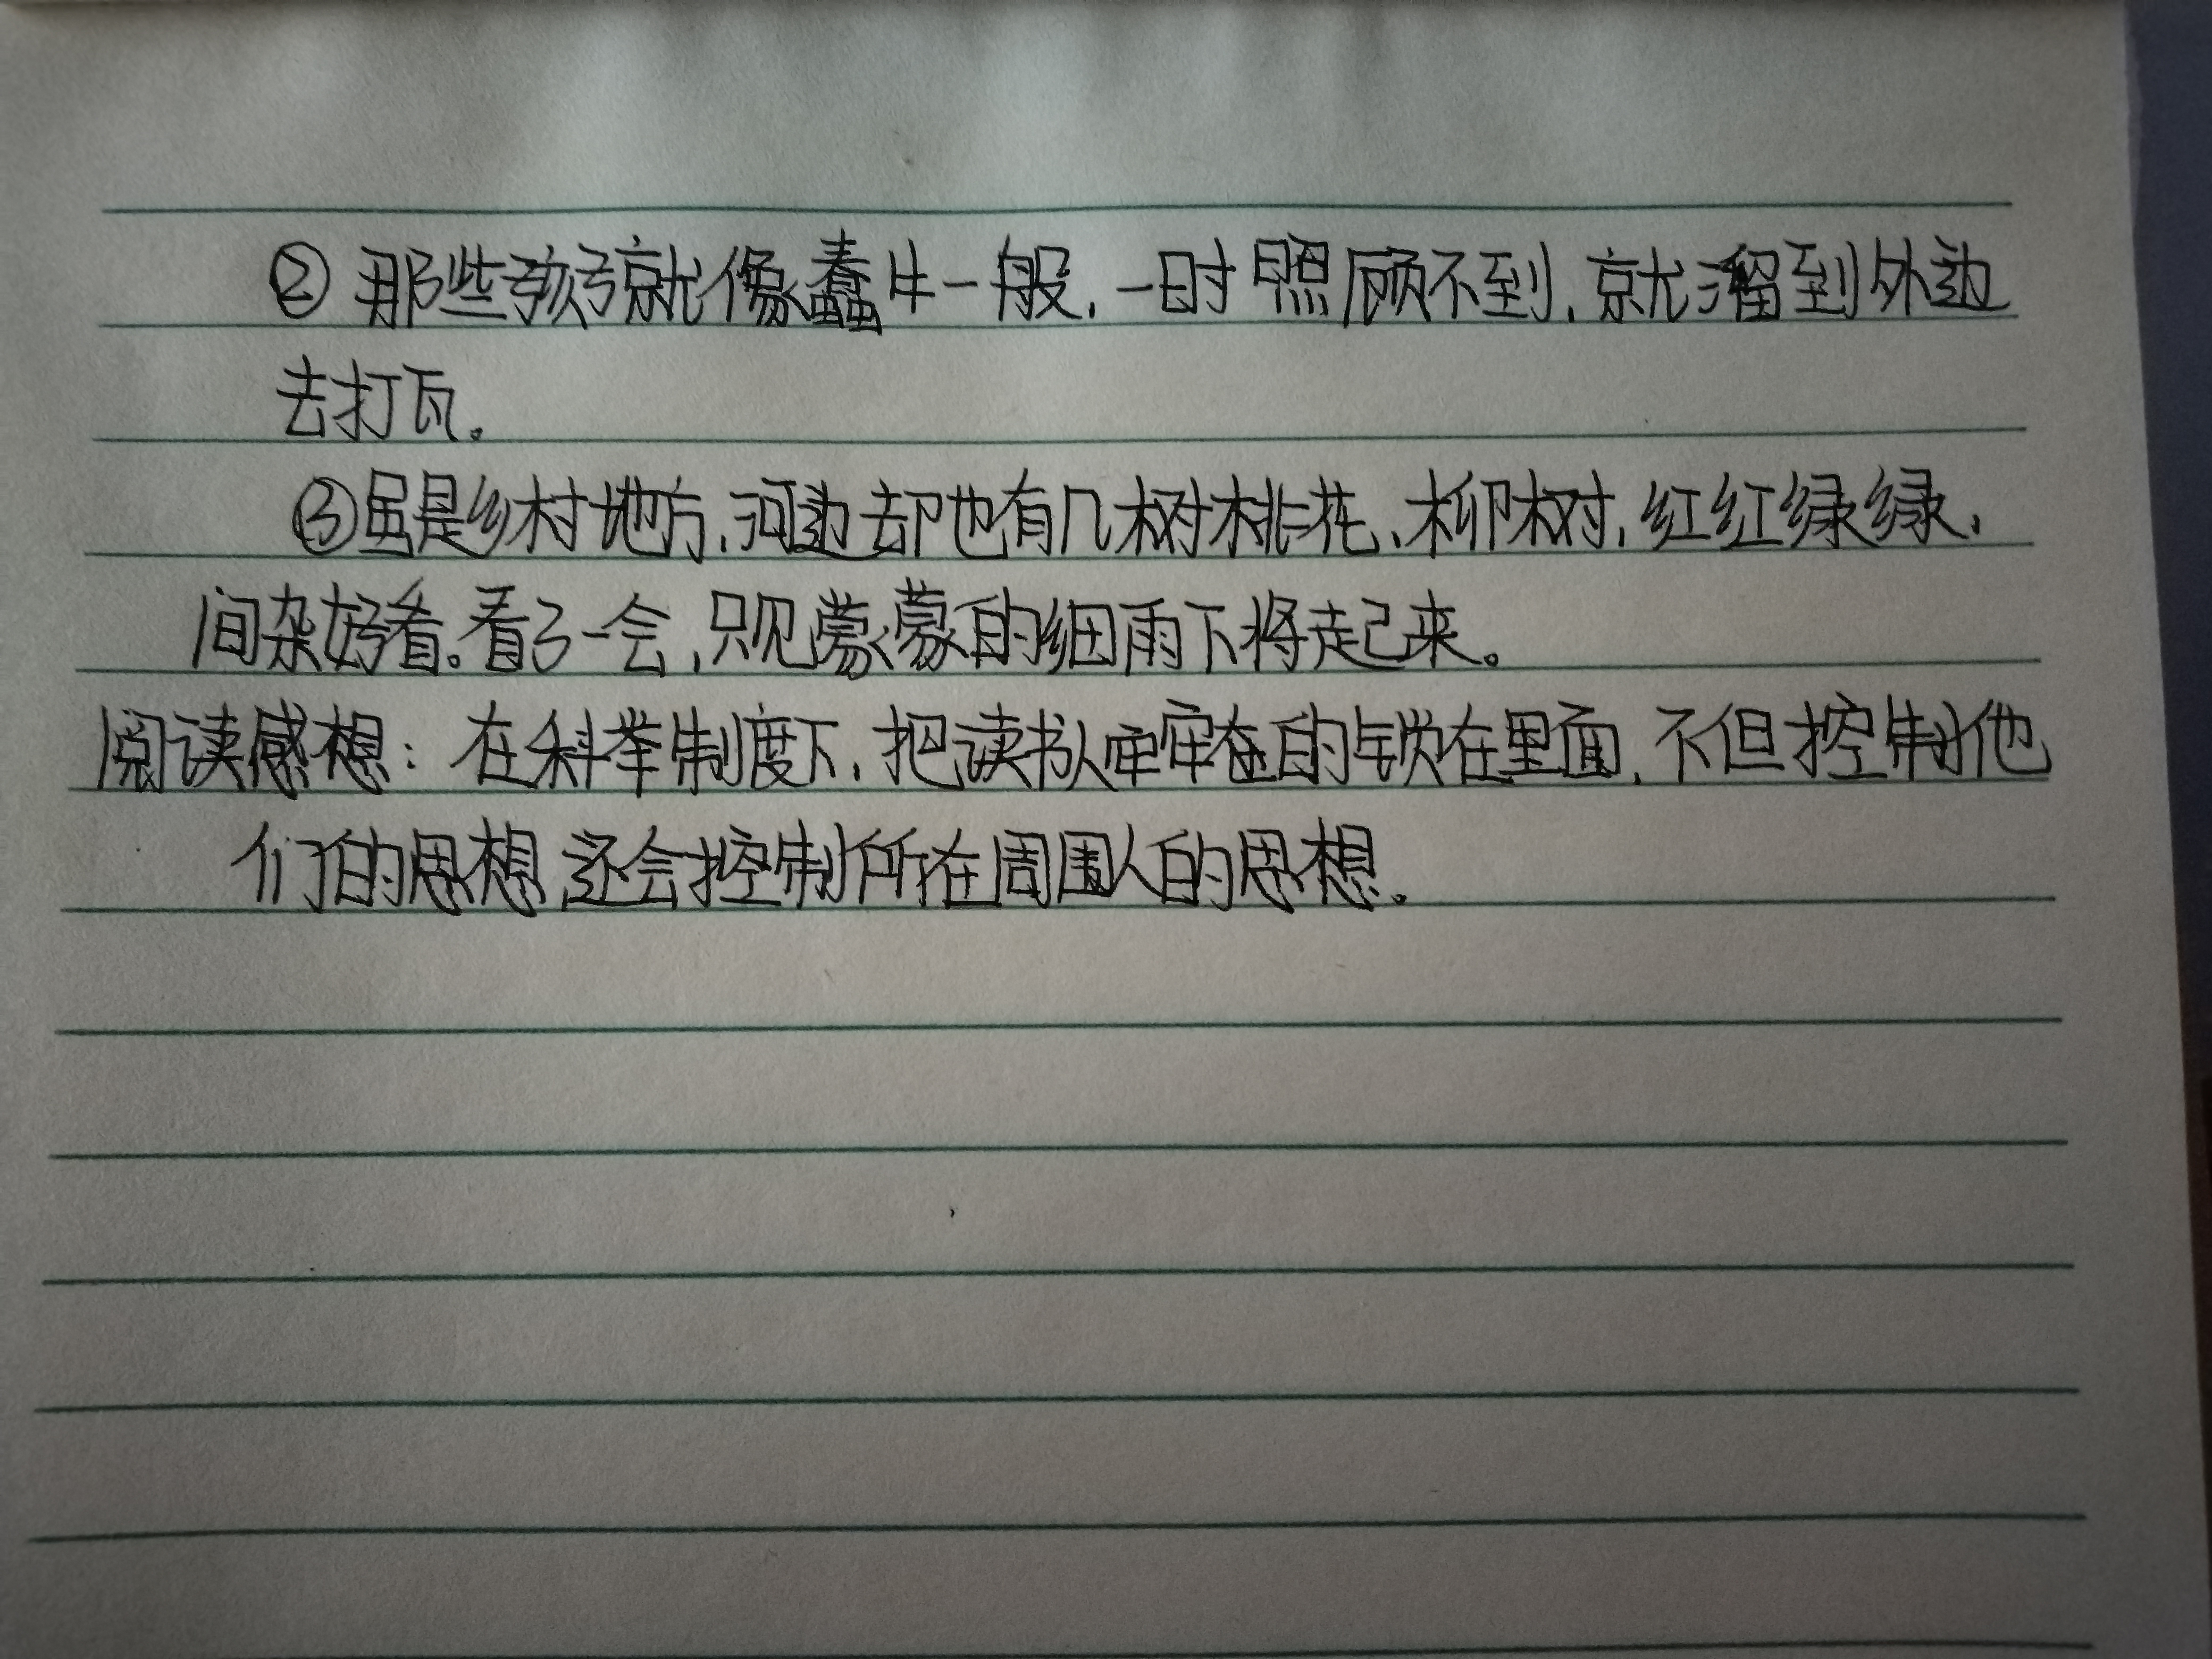 ② 那些孩子就像蠢牛一般，一时照顾不到，就溜到外边
去打瓦。
③虽是乡村地方，河边却也有几树桃花、柳树，红红绿绿，
间杂好看。看了一会，只见蒙蒙的细雨下将起来。
阅读感想：在科举制度下，把读书人牢牢的锁在里面，不但控制他
们的思想，还会控制所在周围人的思想。